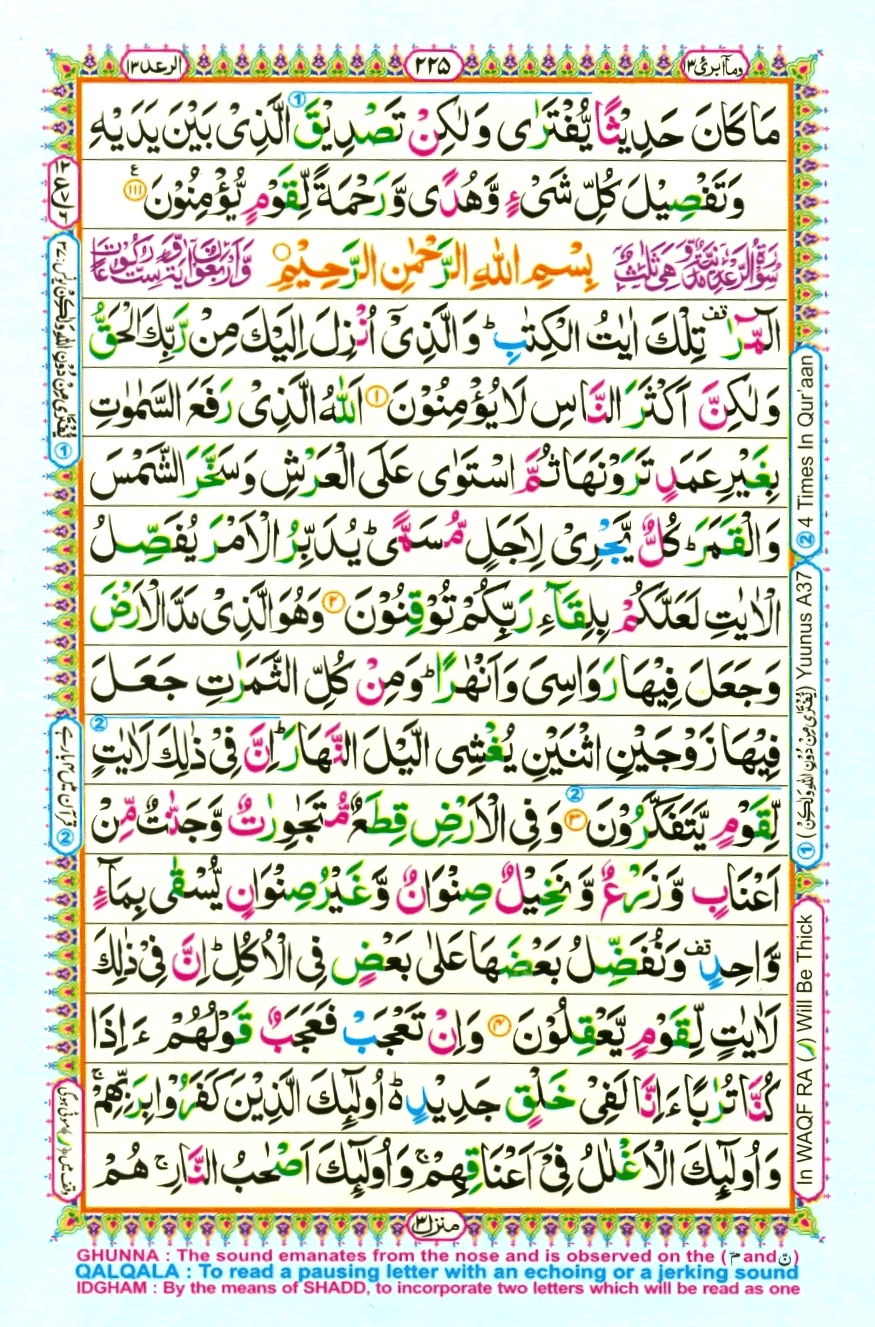 الرعد ١٣
٢٢٥
وما ابرئ ١٣
مَا كَانَ حَدِیْثًا یُّفْتَرٰی وَ لٰكِنْ تَصْدِیْقَ الَّذِیْ بَیْنَ یَدَیْهِ
وَ تَفْصِیْلَ كُلِّ شَیْءٍ وَّ هُدًی وَّ رَحْمَةً لِّقَوْمٍ یُّؤْمِنُوْنَ ۝١١١
سُوْرَةُ الرَّعْدِ مَدَنِیَّةٌ وَّ هِیَ ثَلٰثٌ
بِسْمِ اللّٰهِ الرَّحْمٰنِ الرَّحِیْمِ
وَّ اَرْبَعُوْنَ اٰیَةً وَّ سِتُّ رُكُوْعَاتٍ
الٓمّٓرٰ ۫ تِلْكَ اٰیٰتُ الْكِتٰبِ ؕ وَ الَّذِیْۤ اُنْزِلَ اِلَیْكَ مِنْ رَّبِّكَ الْحَقُّ
وَ لٰكِنَّ اَكْثَرَ النَّاسِ لَا یُؤْمِنُوْنَ ۝١ اَللّٰهُ الَّذِیْ رَفَعَ السَّمٰوٰتِ
بِغَیْرِ عَمَدٍ تَرَوْنَهَا ثُمَّ اسْتَوٰی عَلَی الْعَرْشِ وَ سَخَّرَ الشَّمْسَ
وَ الْقَمَرَ ؕ كُلٌّ یَّجْرِیْ لِاَجَلٍ مُّسَمًّی ؕ یُدَبِّرُ الْاَمْرَ یُفَصِّلُ
الْاٰیٰتِ لَعَلَّكُمْ بِلِقَآءِ رَبِّكُمْ تُوْقِنُوْنَ ۝٢ وَ هُوَ الَّذِیْ مَدَّ الْاَرْضَ
وَ جَعَلَ فِیْهَا رَوَاسِیَ وَ اَنْهٰرًا ؕ وَ مِنْ كُلِّ الثَّمَرٰتِ جَعَلَ
فِیْهَا زَوْجَیْنِ اثْنَیْنِ یُغْشِی الَّیْلَ النَّهَارَ ؕ اِنَّ فِیْ ذٰلِكَ لَاٰیٰتٍ
لِّقَوْمٍ یَّتَفَكَّرُوْنَ ۝٣ وَ فِی الْاَرْضِ قِطَعٌ مُّتَجٰوِرٰتٌ وَّ جَنّٰتٌ مِّنْ
اَعْنَابٍ وَّ زَرْعٌ وَّ نَخِیْلٌ صِنْوَانٌ وَّ غَیْرُ صِنْوَانٍ یُّسْقٰی بِمَآءٍ
وَّاحِدٍ ۫ وَ نُفَضِّلُ بَعْضَهَا عَلٰی بَعْضٍ فِی الْاُكُلِ ؕ اِنَّ فِیْ ذٰلِكَ
لَاٰیٰتٍ لِّقَوْمٍ یَّعْقِلُوْنَ ۝٤ وَ اِنْ تَعْجَبْ فَعَجَبٌ قَوْلُهُمْ ءَاِذَا
كُنَّا تُرٰبًا ءَاِنَّا لَفِیْ خَلْقٍ جَدِیْدٍ ۬ؕ اُولٰٓىِٕكَ الَّذِیْنَ كَفَرُوْا بِرَبِّهِمْ ۚ
وَ اُولٰٓىِٕكَ الْاَغْلٰلُ فِیْۤ اَعْنَاقِهِمْ ۚ وَ اُولٰٓىِٕكَ اَصْحٰبُ النَّارِ ۚ هُمْ
منزل ٣
② 4 Times In Qur'aan
① (یُفْتَرٰی مِنْ دُوْنِ اللّٰهِ وَ لٰكِنْ) Yuunus A37
In WAQF RA (ر) Will Be Thick
یُفْتَرٰی مِنْ دُوْنِ اللّٰهِ وَ لٰكِنْ یونس ٣٧ ①
② قرآن میں ۴ بار ہے
وقف میں (ر) موٹی ہوگی
GHUNNA : The sound emanates from the nose and is observed on the (مّ and نّ)
QALQALA : To read a pausing letter with an echoing or a jerking sound
IDGHAM : By the means of SHADD, to incorporate two letters which will be read as one